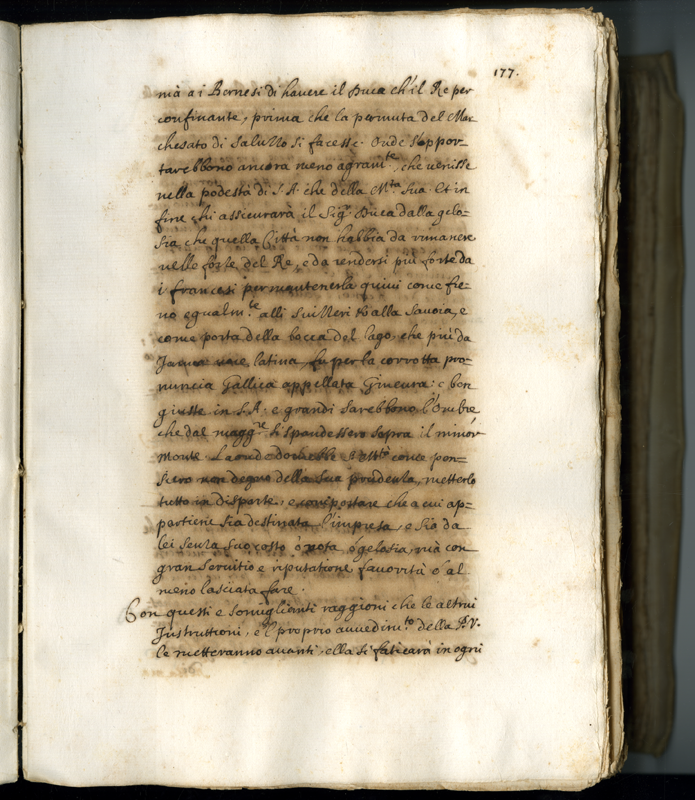 177.
mà a i Bernesi di havere il Duca ch'il Re per
confinante, prima che la permuta del Mar
chesato di Saluzzo si facesse. Onde soppor-
tarebbono ancora meno agravi.te, che venisse
nella podestà di S.A. che della M.tà Sua. Et in
fine chi assicurarà il Sig.r Duca dalla gelo-
sia, che quella Città non habbia da rimanere
nelle forze del Re, e da rendersi più forte da
i francesi per mantenerla quivi come fre-
no egualm.te alli Suizzeri alla Savoia, e
come porta della bocca del lago, che più da
Janua voce latina, per la corrotta pro-
nuncia Gallica appellata Gineura: e ben
giuste in S.A. e grandi sarebbono l'Ombre
che dal magg.re si spandessero sopra il minor
Monte. Laonde come pen-
siero non degno della sua prudenza, metterlo
tutto in disparte, e comportare che a cui ap-
partiene sia destinata l'impresa, e sia da
lei senza suo costo ò nota ò gelosia, mà con
gran servitio e riputatione favorita ò al
meno lasciata fare.
Con questi e somiglianti raggioni che le altrui
Instruttioni, e'l proprio avvedim.to della P.V.
le metteranno avanti, ella si faticarà in ogni